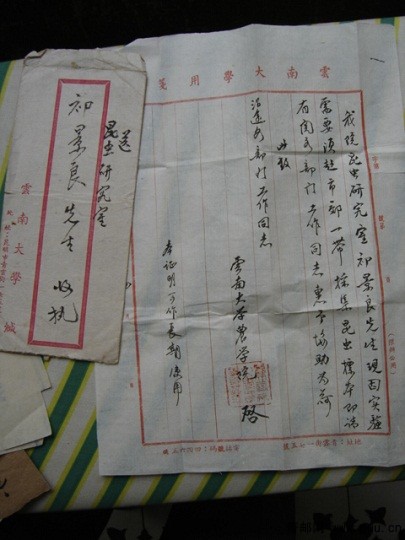 雲南大學用箋
我院昆虫研究室祁景良先生現因實驗
需要須赴市郊一帶採集昆虫標本即請
有關各部門工作同志惠予協助為荷
此致
沿途各部門工作同志
雲南大學農學院 啓
本證明可作長期使用
送
昆虫研究室
祁景良先生 收执
雲南大學緘